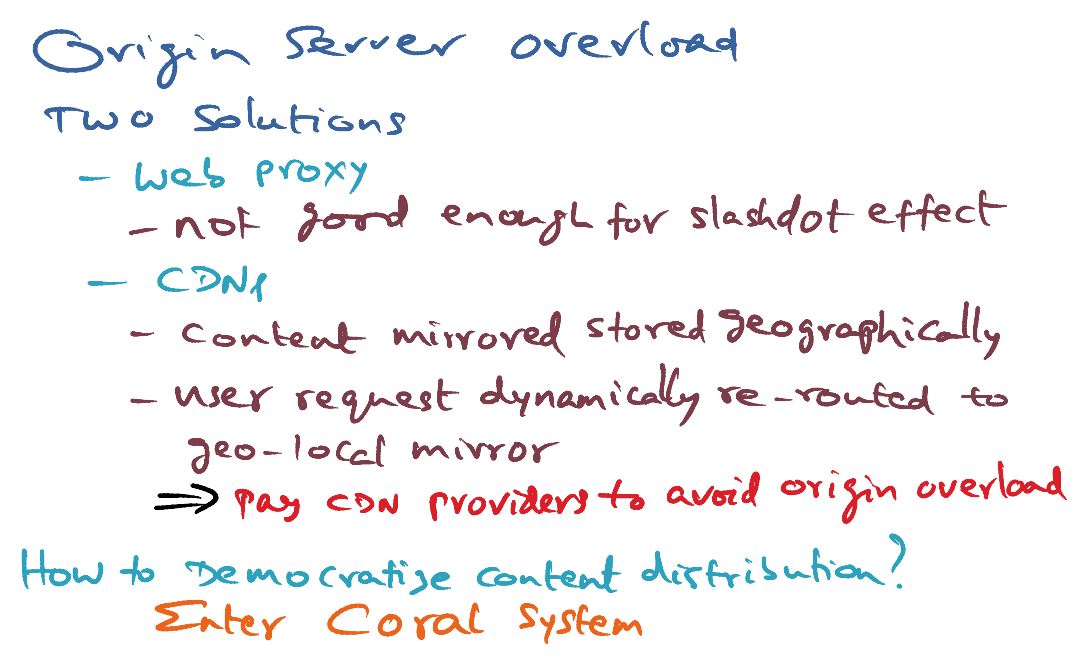 Origin Server overload
Two Solutions
- Web proxy
- not good enough for slashdot effect
- CDNs
- Content mirrored stored geographically
- user request dynamically re-routed to
geo-local mirror
⇒ Pay CDN providers to avoid origin overload
How to Democratize content distribution?
Enter Coral System